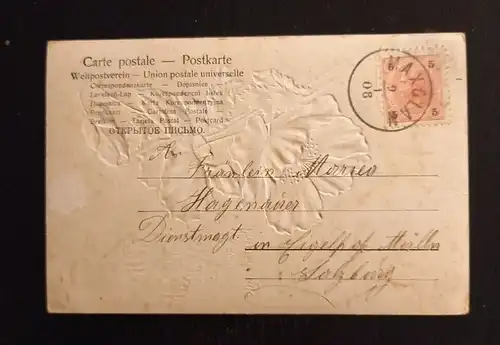 Carte postale — Postkarte
Weltpostverein — Union postale universelle
Correspondenzkarte — Dopisnica —
Levelezö-Lap — Korespondenční lístek
Dopisnica — Karta Korespondencyjna
Briefkaart — Cartolina Postale —
— Tarjeta Postal — Postcard
ОТКРЫТОЕ ПИСЬМО.
5 5
MAXGLAN
08
5 5
An
Fräulein Maria
Hagenauer
Dienstmagt in
Salzburg